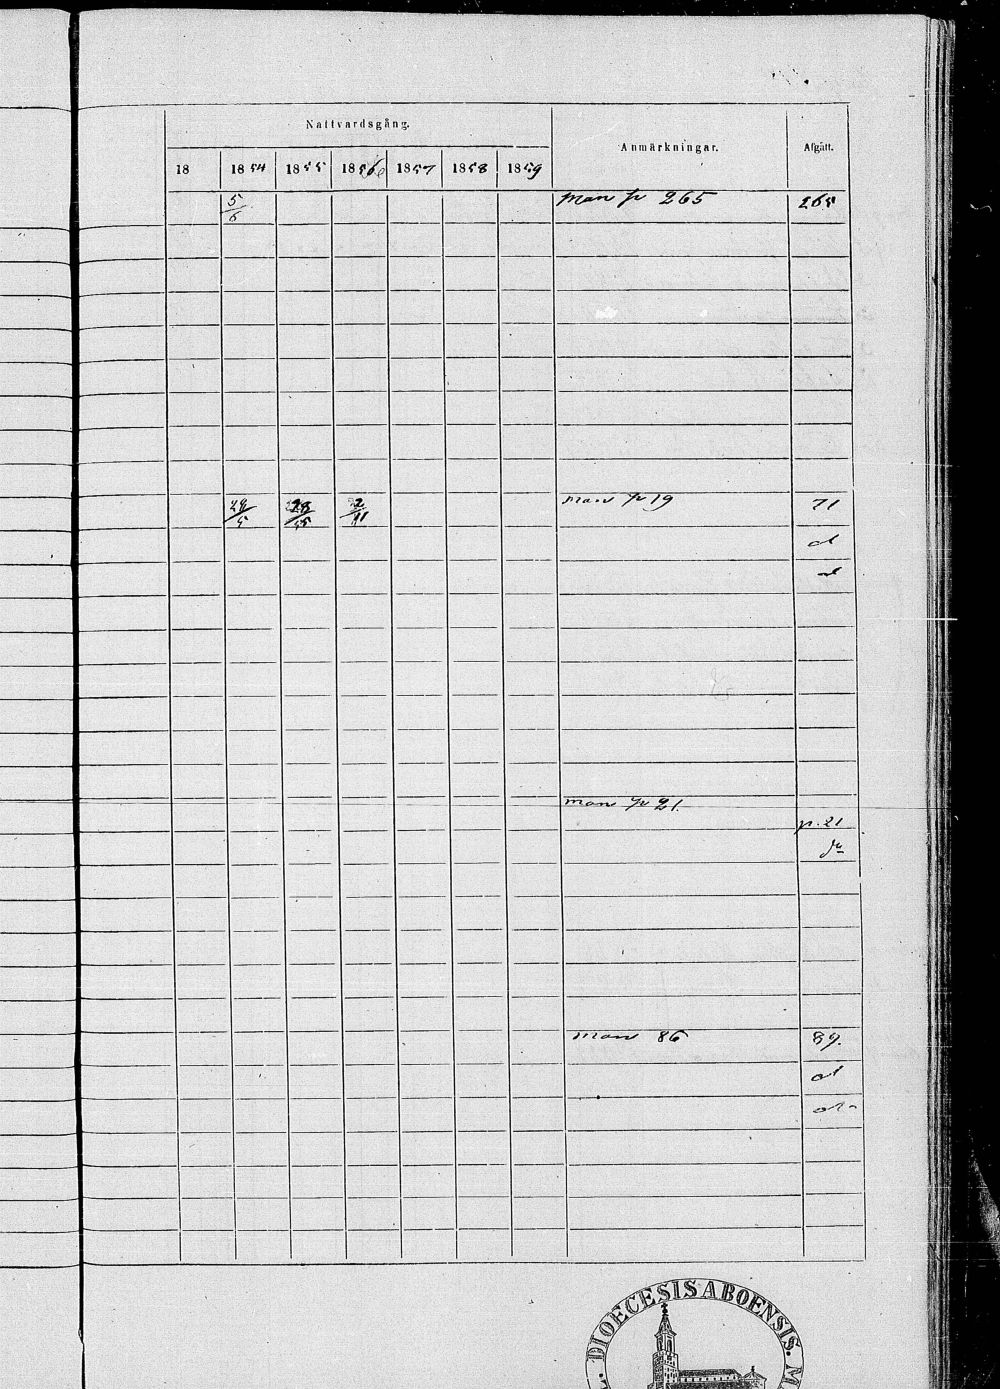 Nattvardsgång. Anmärkningar. Afgått.
18 1854 1855 1856 1857 1858 1859
5/6 man p 265 265
28/5 28/5 2/11 man p 19 71
d
d
man p 21
p. 21
do
man 86 89.
d
do
DIOECESIS ABOENSIS. M